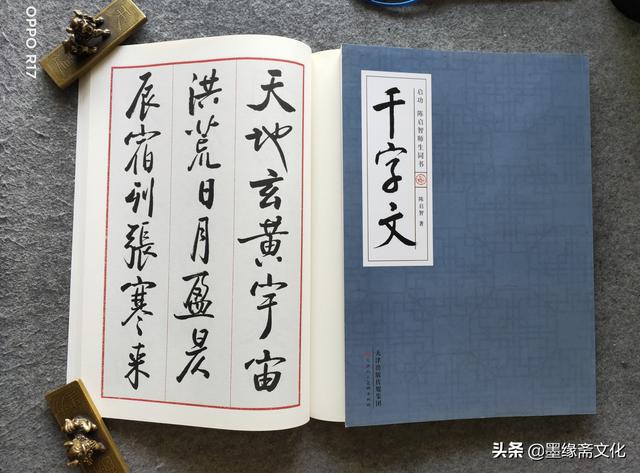 天地玄黄宇宙
洪荒日月盈昃
辰宿列張寒来
启功 陈启智师生同书
陈启智 著
千字文
天津出版传媒集团
OPPO R17
头条 @墨缘斋文化